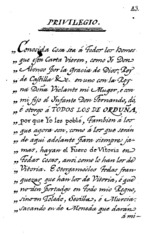 83.
PRIVILEGIO.
„Conocida Cosa sea á Todos los Homes
„que esta Carta Vieren, como Io Don
„Alonso Por la Gracia de Dios, Rey
„de Castilla &c. en uno con la Rey-
„na Doña Violante mi Muger, é con
„mi fijo el Infante Don Fernando, dó
„é otorgo á TODOS LOS DE ORDUÑA,
„por que Yo les poblé, Tambien á los
„que agora son, como á los que serán
„de aqui adelante Para siempre ja-
„mas, hayan el Fuero de Vitoria en
„Todas Cosas, ansi como le han los de
„Vitoria. É otorgamosles Todas fran-
„quezas que han los de Vitoria, é que
„no den Portadgo en Todo mio Regno,
„sinon Toledo, Sevilla, é Murcia:
„sacando en de Moneda que darán
á mi-